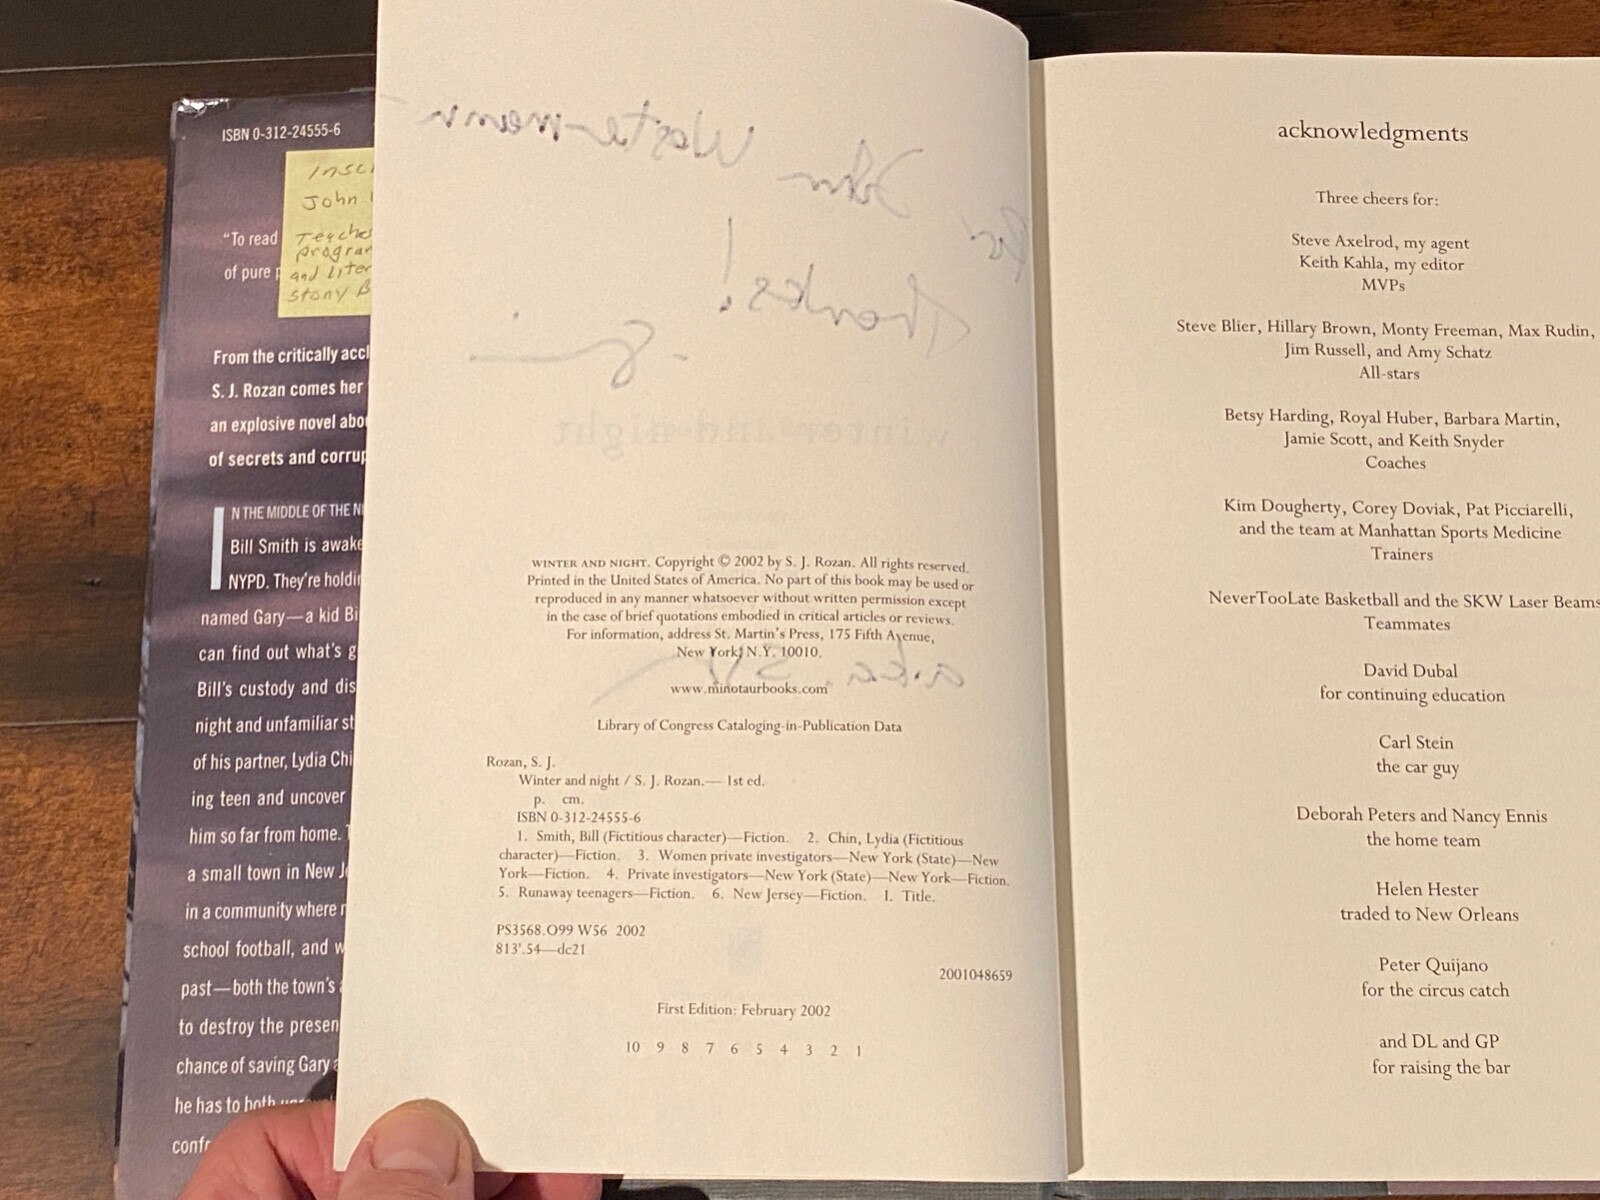 ISBN 0-312-24555-6
John
"To read
of pure
and
Stony B
From the critically accl
S. J. Rozan comes her
an explosive novel abo
of secrets and corrup
IN THE MIDDLE OF THE NI
Bill Smith is awake
NYPD. They're holdin
named Gary—a kid Bi
can find out what's g
Bill's custody and dis
night and unfamiliar st
of his partner, Lydia Chi
ing teen and uncover
him so far from home.
a small town in New Je
in a community where
school football, and w
past—both the town's
to destroy the presen
chance of saving Gary
he has to both
confr
For John Westermann
Thanks!
winter and night
a.k.a.
WINTER AND NIGHT. Copyright © 2002 by S. J. Rozan. All rights reserved.
Printed in the United States of America. No part of this book may be used or
reproduced in any manner whatsoever without written permission except
in the case of brief quotations embodied in critical articles or reviews.
For information, address St. Martin's Press, 175 Fifth Avenue,
New York, N.Y. 10010.
www.minotaurbooks.com
Library of Congress Cataloging-in-Publication Data
Rozan, S. J.
Winter and night / S. J. Rozan.— 1st ed.
p. cm.
ISBN 0-312-24555-6
1. Smith, Bill (Fictitious character)—Fiction. 2. Chin, Lydia (Fictitious
character)—Fiction. 3. Women private investigators—New York (State)—New
York—Fiction. 4. Private investigators—New York (State)—New York—Fiction.
5. Runaway teenagers—Fiction. 6. New Jersey—Fiction. I. Title.
PS3568.O99 W56 2002
813'.54—dc21
2001048659
First Edition: February 2002
10 9 8 7 6 5 4 3 2 1
acknowledgments
Three cheers for:
Steve Axelrod, my agent
Keith Kahla, my editor
MVPs
Steve Blier, Hillary Brown, Monty Freeman, Max Rudin,
Jim Russell, and Amy Schatz
All-stars
Betsy Harding, Royal Huber, Barbara Martin,
Jamie Scott, and Keith Snyder
Coaches
Kim Dougherty, Corey Doviak, Pat Picciarelli,
and the team at Manhattan Sports Medicine
Trainers
NeverTooLate Basketball and the SKW Laser Beams
Teammates
David Dubal
for continuing education
Carl Stein
the car guy
Deborah Peters and Nancy Ennis
the home team
Helen Hester
traded to New Orleans
Peter Quijano
for the circus catch
and DL and GP
for raising the bar